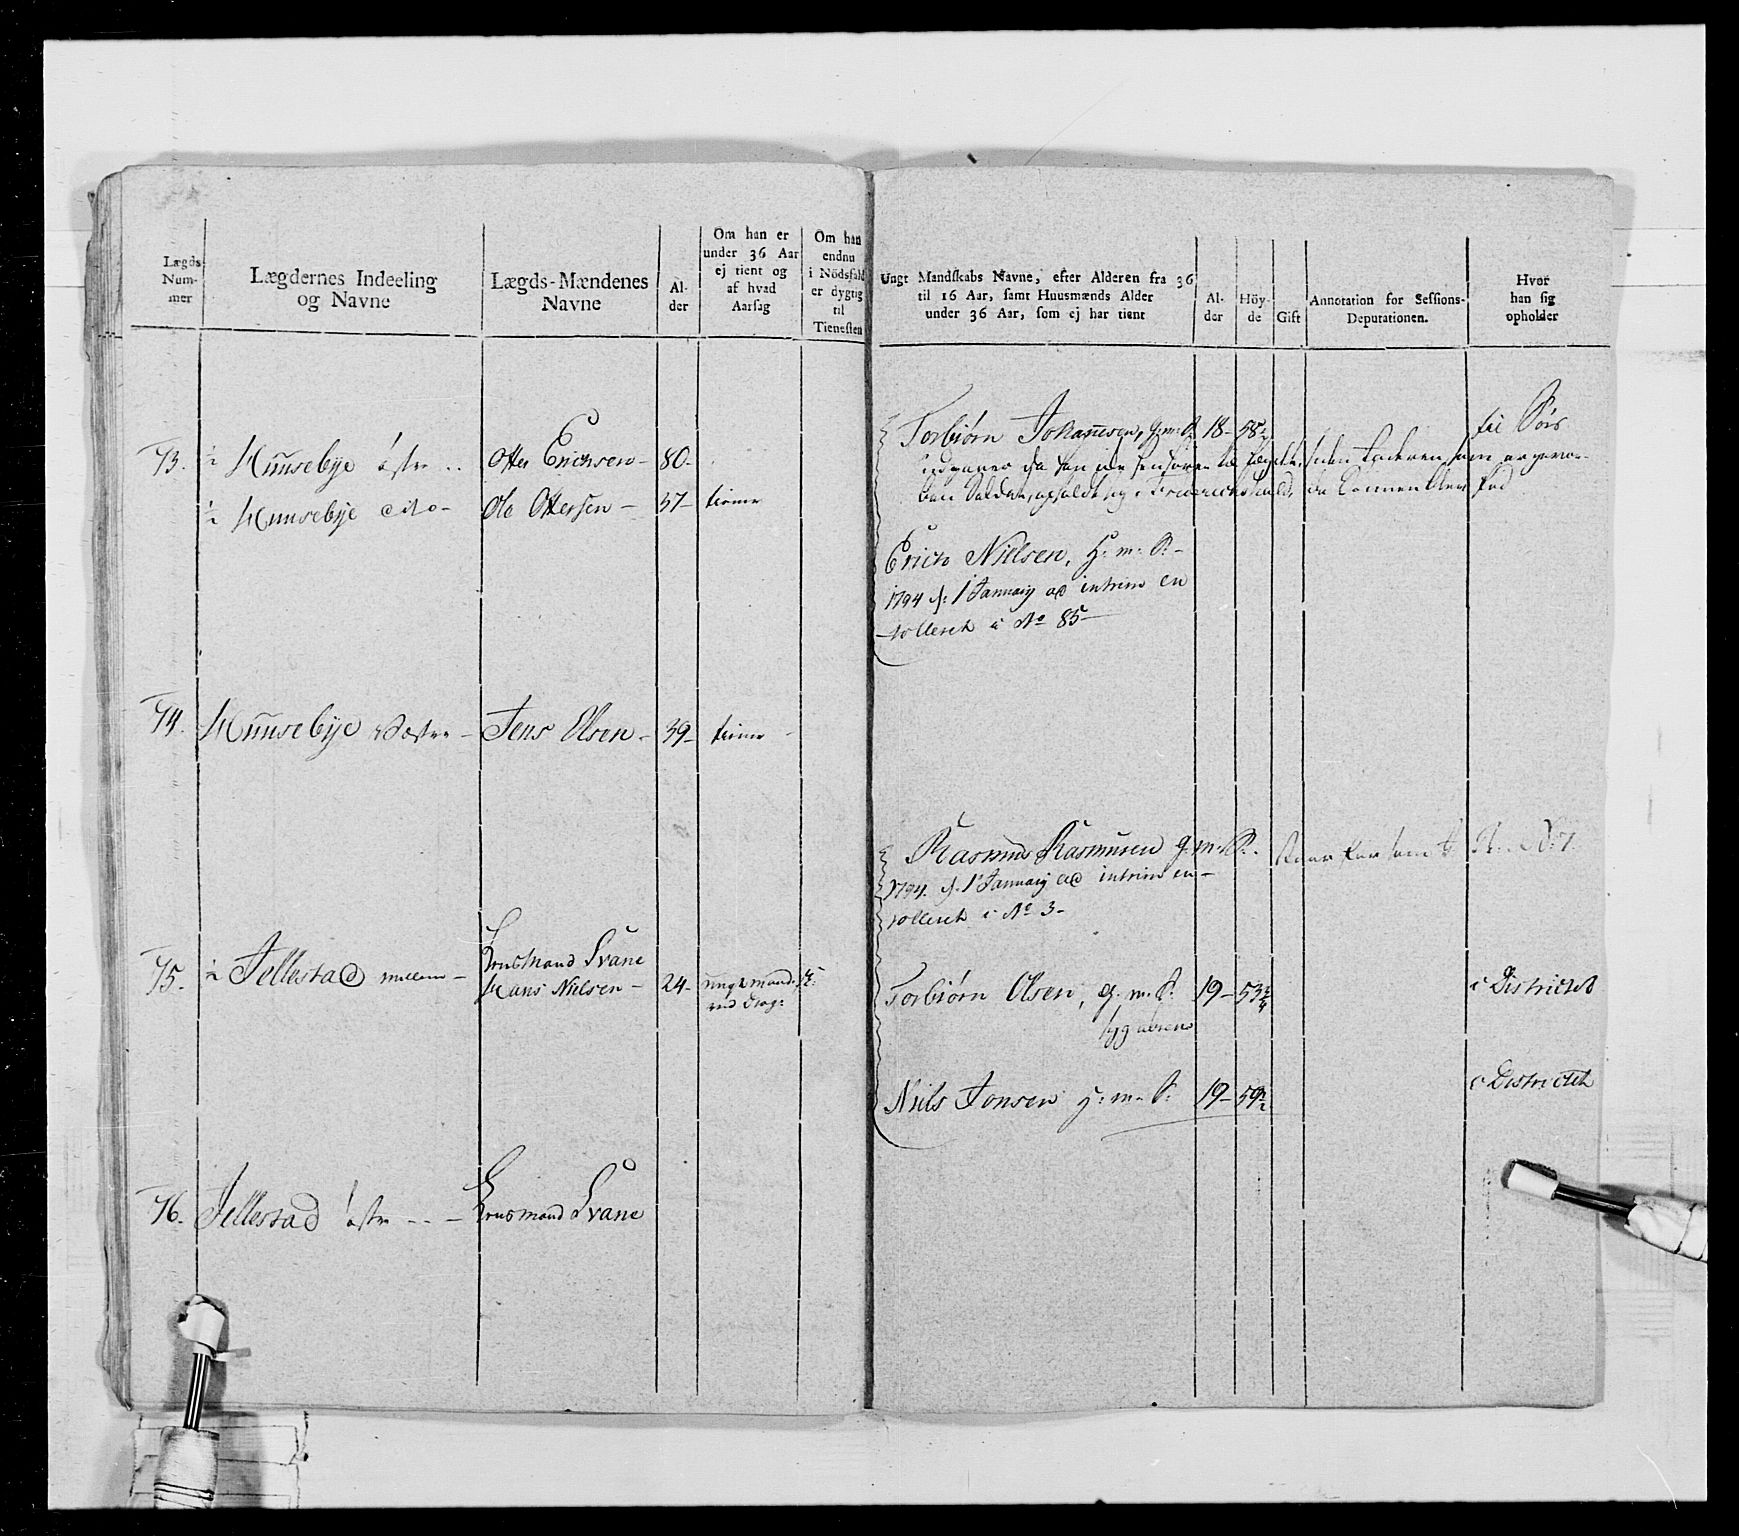 Lægds
Num-
mer
Lægdernes Indeeling
og Navne
Lægds-Mændenes
Navne
Al-
der
Om han er
under 36 Aar
ej tient og
af hvad
Aarsag
Om han
endnu
i Nödsfald
er dygtig
til
Tienesten
73. ½ Huusebÿe østre
Otter Erichsen 80
½ Huusebÿe dito
Ole Ottersen 37 tiener
74. Huusebÿe Vestre
Jens Olsen 39 tiener
75. ½ Jellestad mellem
Svane
Hans Nielsen 24
76. Jellestad østre
Svane
Ungt Mandskabs Navne, efter Alderen fra 36
til 16 Aar, samt Huusmænds Alder
under 36 Aar, som ej har tient
Al-
der
Höy-
de
Gift
Annotation for Sessions-
Deputationen.
Hvor
han sig
opholder
Torbiørn Johannesen, g: m: S 18 58½ til Søes
Erich Nielsen, H: m: S:
1794 d: 1 Januarj ad intrim en
rolleret i No 85
Rasmus Rasmusen g: m: S:
1794. d. 1 Januarj ad intrim en
rolleret i No 3
Torbiørn Olsen, g. m. S: 19 53¾ i Districtet
Niels Jonsen H: m: S: 19 59½ i Districtet